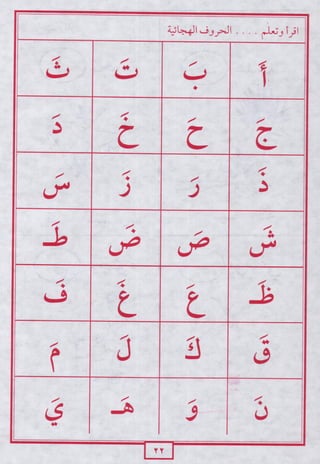 اقرأ وتعلم .... الحروف الهجائية
أَ بَ تَ ثَ
جَ حَ خَ دَ
ذَ رَ زَ سَ
شَ صَ ضَ طَـ
ظَـ عَ غَ فَ
قَ كَ لَ مَ
نَ وَ هَـ يَ
٢٢